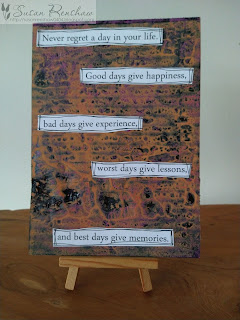 Susan Renshaw
Never regret a day in your life.
Good days give happiness,
bad days give experience,
worst days give lessons,
and best days give memories.